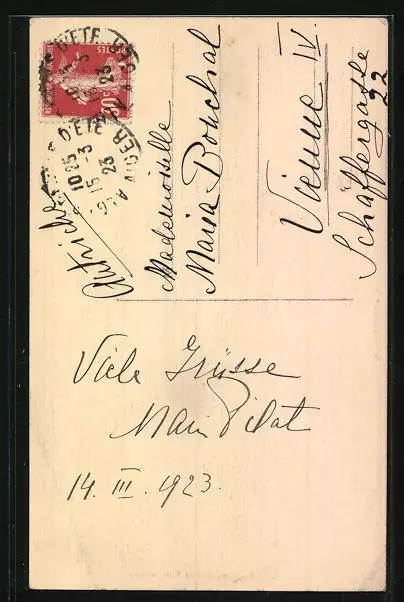 POSTES
30c
D'ETÉ
ALGER
10 25
15 -3
23
Autriche
Mademoiselle
Maria Ponchal
Vienne IV
Schäffergasse
22
Viele Grüsse
14. III. 1923.